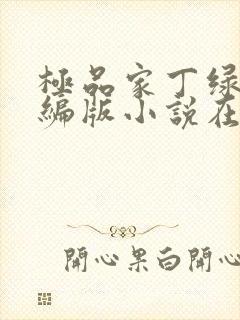 極品家丁绿
編版小說在
開心果白開心